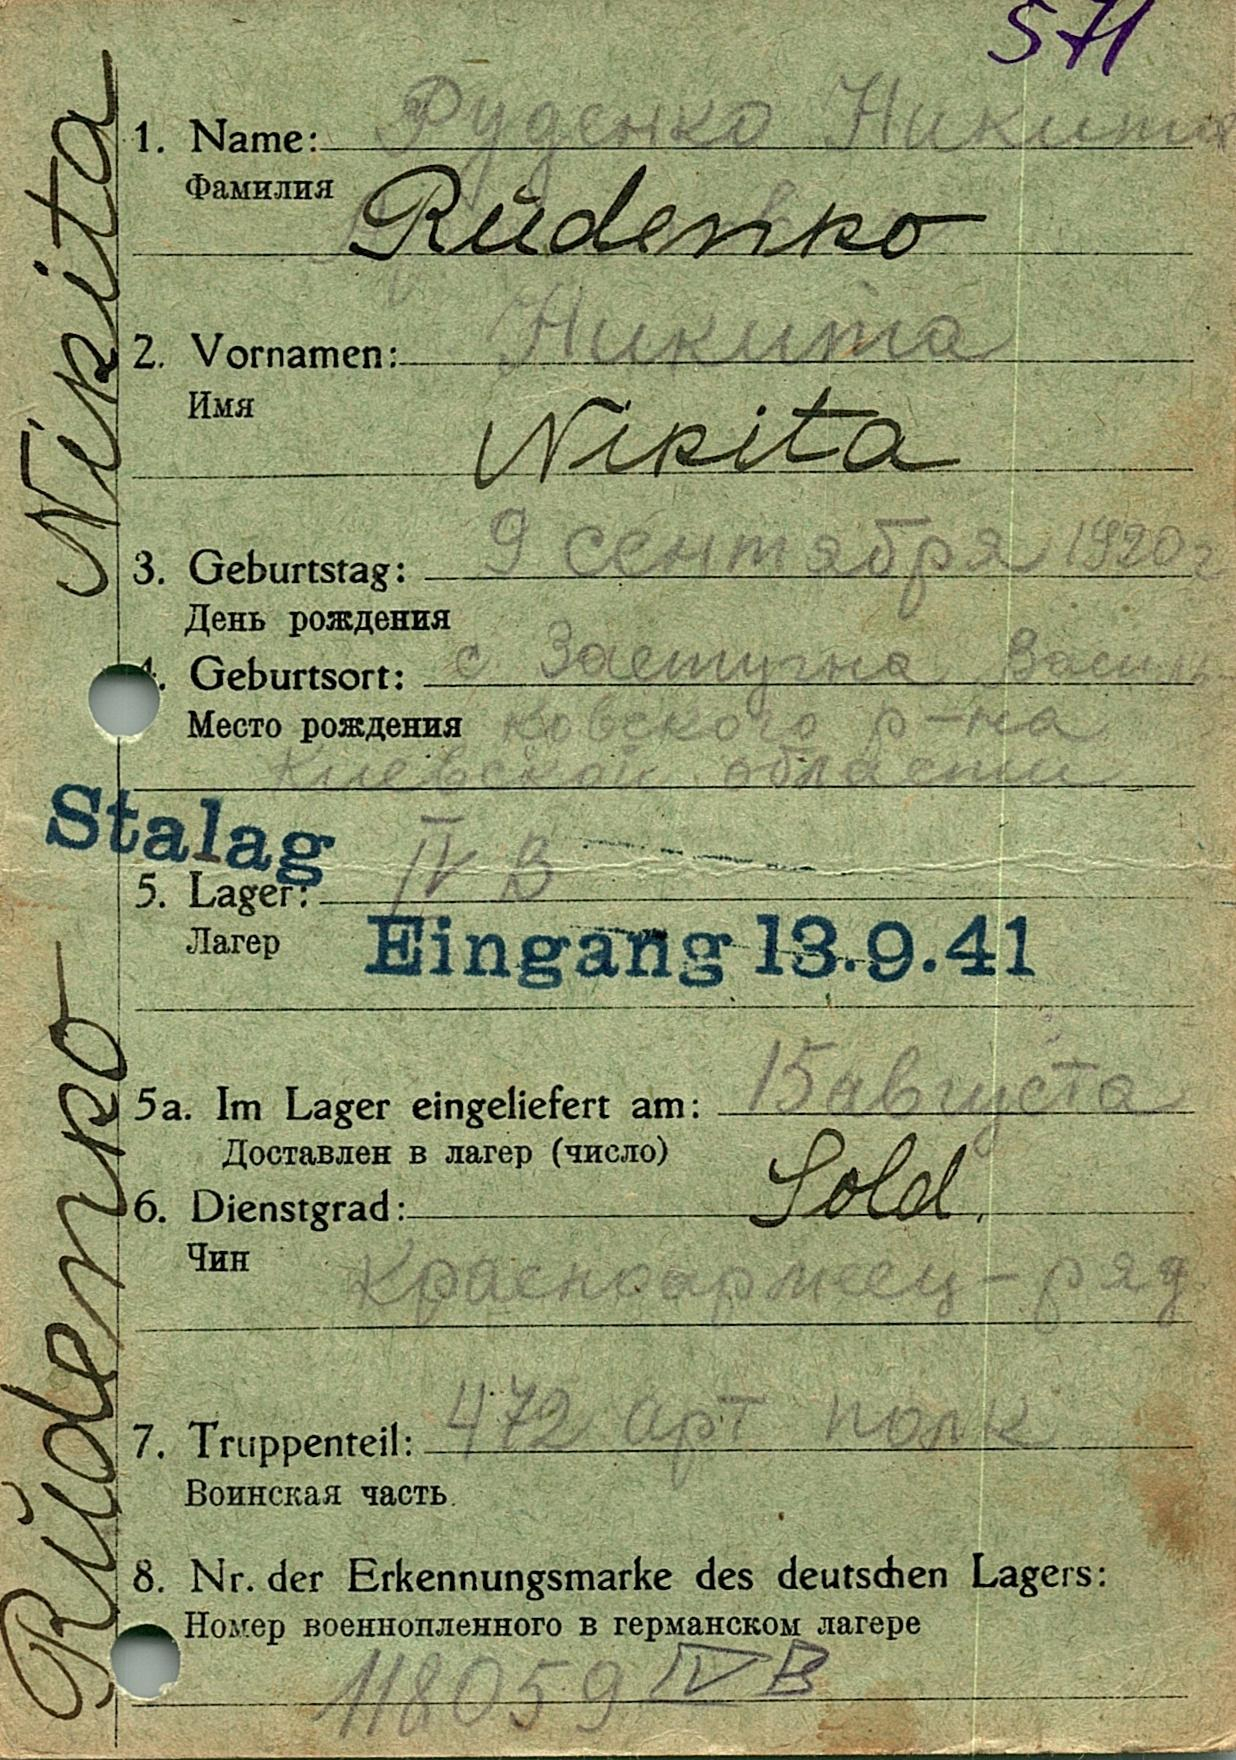 571
1. Name: Руденко Никита
Фамилия
Rŭdenko
2. Vornamen: Никита
Имя
Nikita
3. Geburtstag: 9 сентября 1920г
День рождения
4. Geburtsort: с. Застугна Василь-
Место рождения ковского р-на
Киевской области
Stalag IV B
5. Lager:
Лагер
Eingang 13.9.41
5a. Im Lager eingeliefert am: 15 августа
Доставлен в лагер (число)
6. Dienstgrad: Sold.
Чин
Красноармеец - ряд.
7. Truppenteil: 472 арт полк
Воинская часть.
8. Nr. der Erkennungsmarke des deutschen Lagers:
Номер военнопленного в германском лагере
118059 IV B
Rŭdenko Nikita